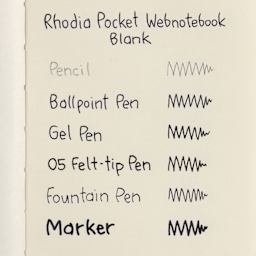 Rhodia Pocket Webnotebook
Blank
Pencil
Ballpoint Pen
Gel Pen
05 Felt-tip Pen
Fountain Pen
Marker